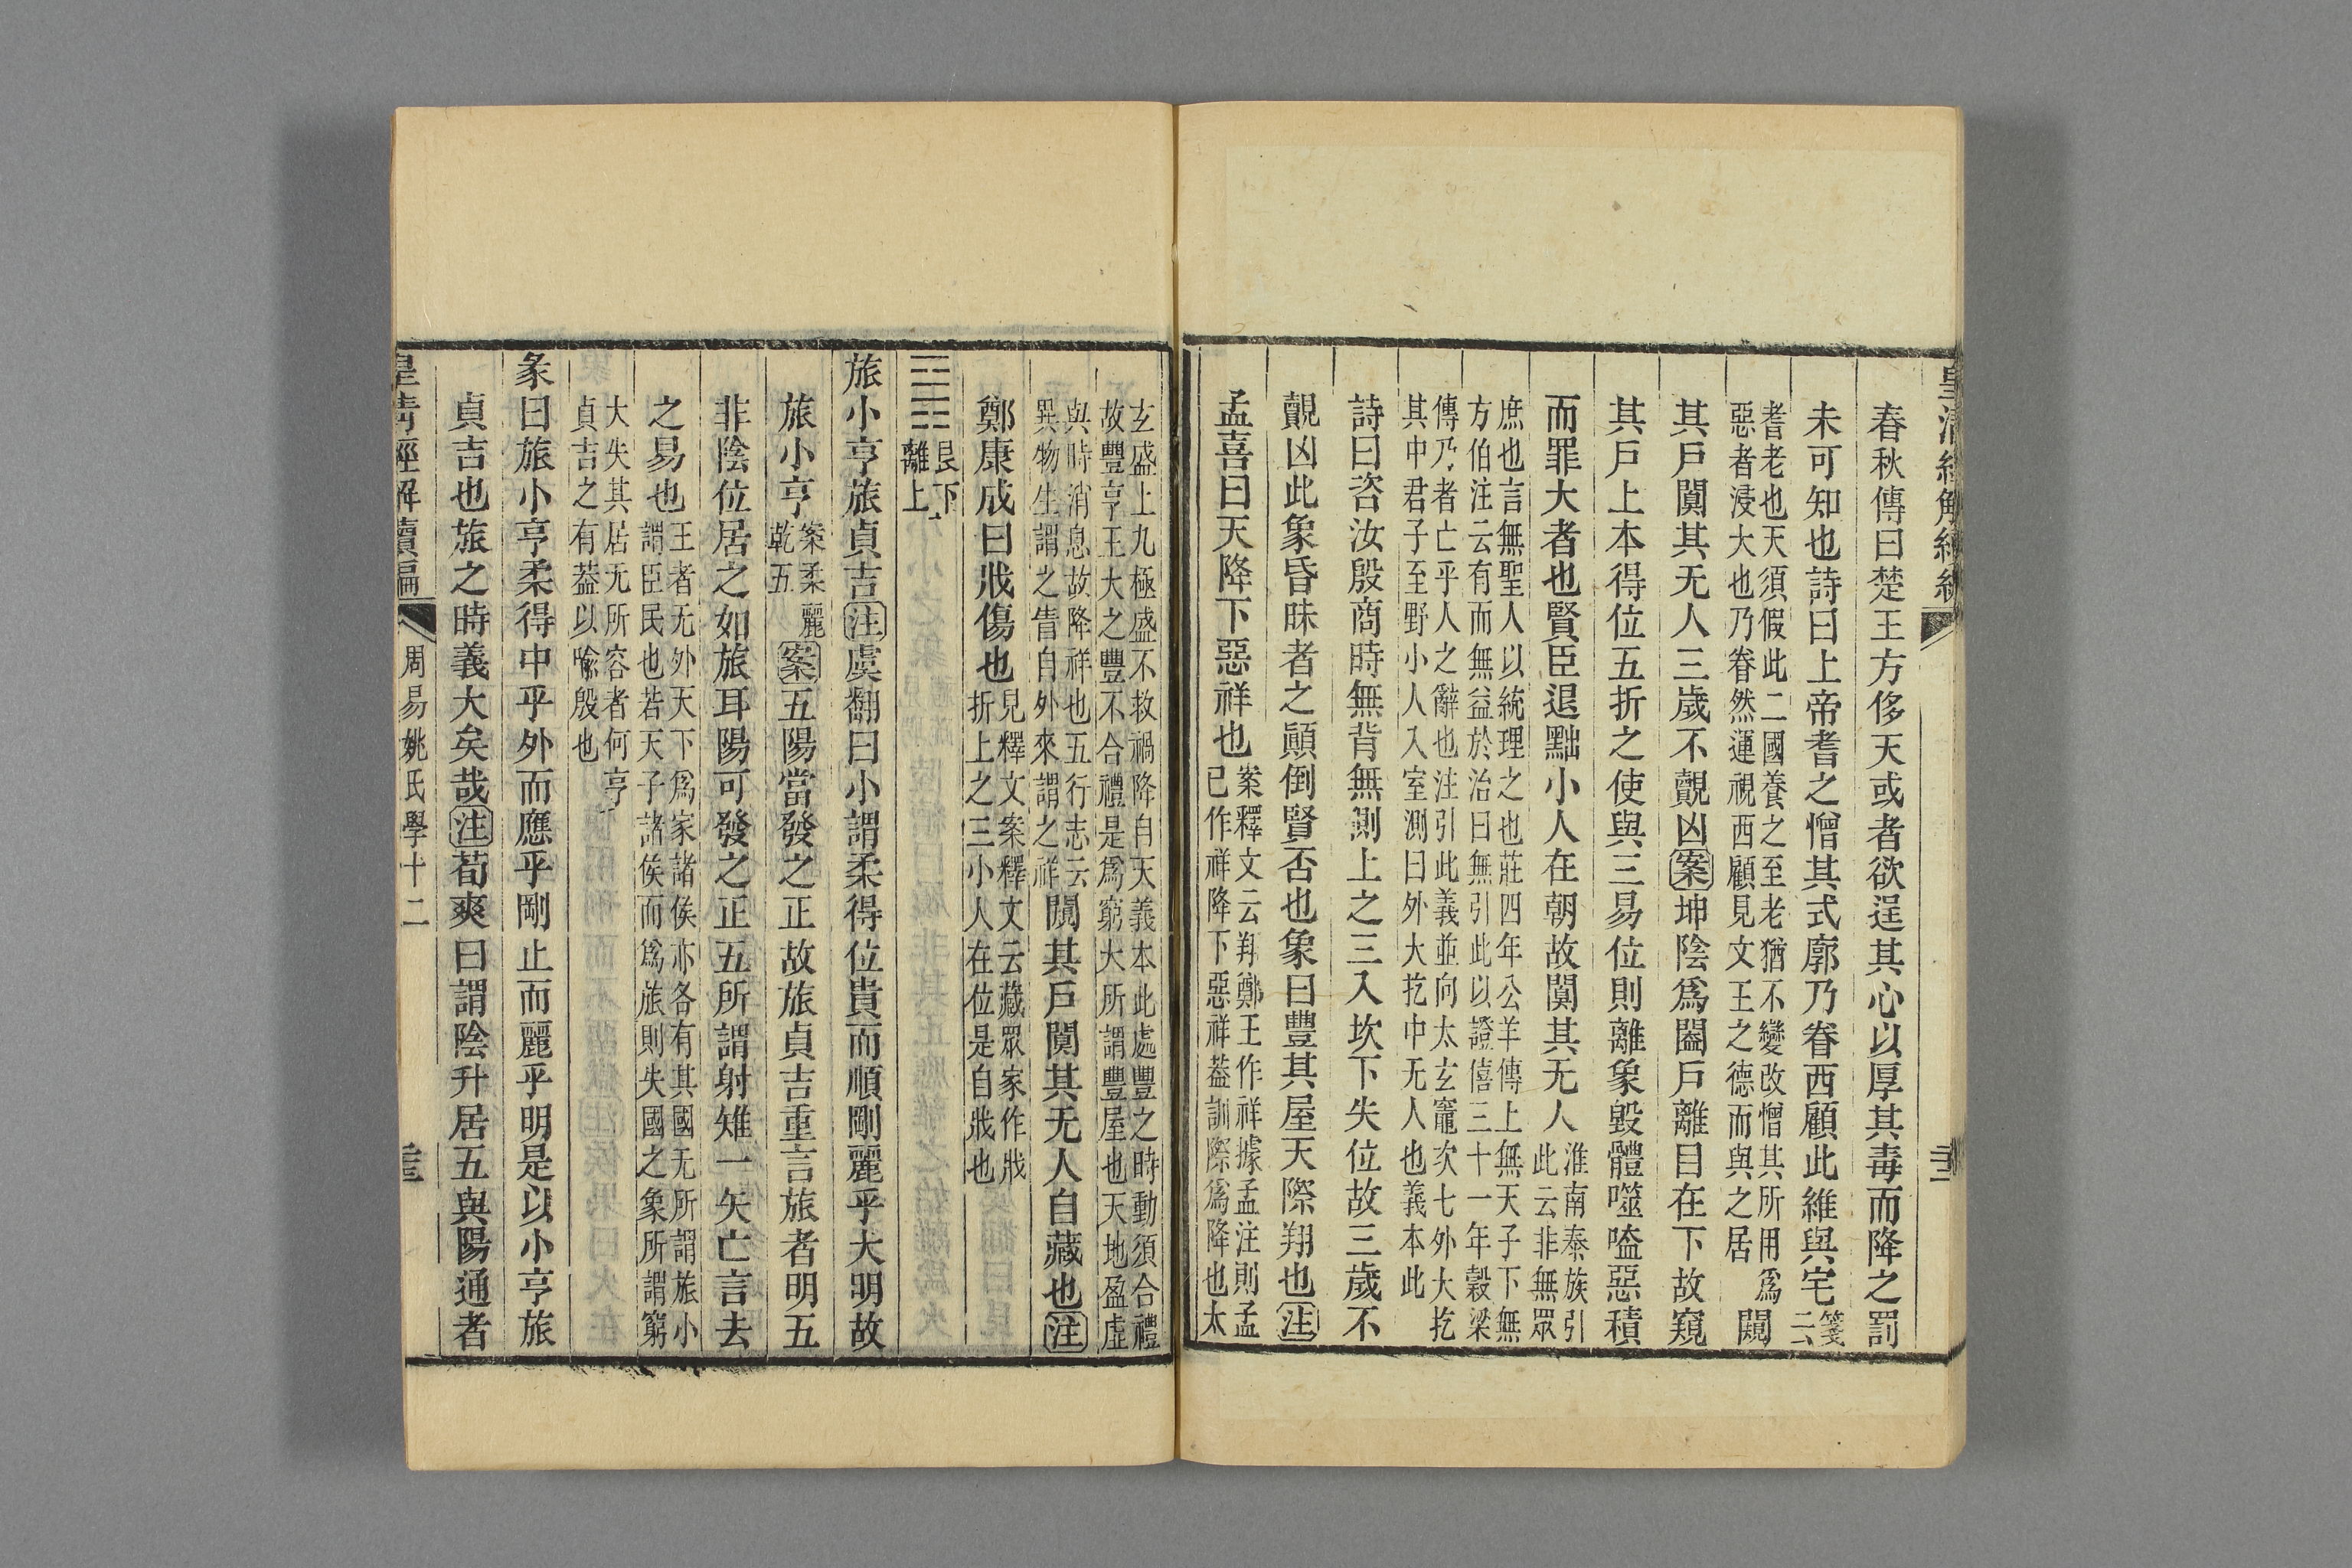 春秋傳曰楚王方侈天或者欲逞其心以厚其毒而降之罰
未可知也詩曰上帝耆之憎其式廓乃眷西顧此維與宅箋云
耆老也天須假此二國養之至老猶不變改憎其所用爲
惡者浸大也乃眷然運視西顧見文王之德而與之居闚
其戶闃其无人三歲不覿凶案坤陰爲闔戶離目在下故窺
其戶上本得位五折之使與三易位則離象毀體噬嗑惡積
而罪大者也賢臣退黜小人在朝故闃其无人淮南泰族引此云非無眾
庶也言無聖人以統理之也莊四年公羊傳上無天子下無
方伯注云有而無益於治曰無引此以證僖三十一年穀梁
傳乃者亡乎人之辭也注引此義並向太玄竈次七外大扢
其中君子至野小人入室測曰外大扢中无人也義本此
詩曰咨汝殷商時無背無側上之三入坎下失位故三歲不
覿凶此象昏昧者之顚倒賢否也象曰豐其屋天際翔也注
孟喜曰天降下惡祥也案釋文云翔鄭王作祥據孟注則孟
已作祥降下惡祥葢訓際爲降也太
玄盛上九極盛不救禍降自天義本此處豐之時動須合禮
故豐亨王大之豐不合禮是爲窮大所謂豐屋也天地盈虛
與時消息故降祥也五行志云
異物生謂之眚自外來謂之祥闚其戶闃其无人自藏也注
鄭康成曰戕傷也見釋文案釋文云藏眾家作戕
折上之三小人在位是自戕也
艮下
離上
旅小亨旅貞吉注虞翻曰小謂柔得位貴而順剛麗乎大明故
旅小亨案柔麗
乾五案五陽當發之正故旅貞吉重言旅者明五
非陰位居之如旅耳陽可發之正五所謂射雉一矢亡言去
之易也王者无外天下爲家諸侯亦各有其國无所謂旅小
謂臣民也若天子諸侯而爲旅則失國之象所謂窮
大失其居无所容者何亨
貞吉之有葢以喩殷也
彖曰旅小亨柔得中乎外而應乎剛止而麗乎明是以小亨旅
貞吉也旅之時義大矣哉注荀爽曰謂陰升居五與陽通者
皇清經解續編 周易姚氏學十二